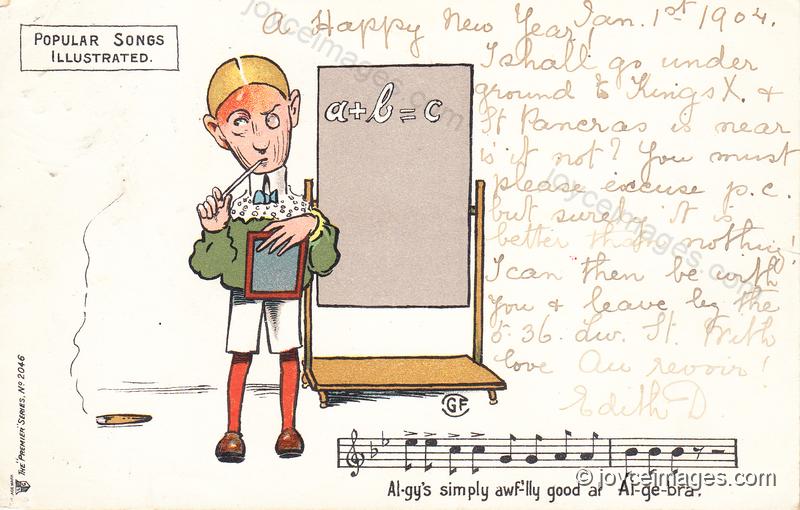 POPULAR SONGS
ILLUSTRATED.
A Happy New Year, Jan. 1st 1904.
I shall go under
ground to Kings X. &
St Pancras is near
is it not? You must
please excuse p.c.
but surely it is
better than nothing!
I can then be with
you & leave by the
5.36. Liv. St. With
love Au revoir!
Edith D
a+b=c
GF
THE "PREMIER" SERIES, No 2046
Al-gy's simply awf-'lly good at Al-ge-bra.
© joyceimages.com